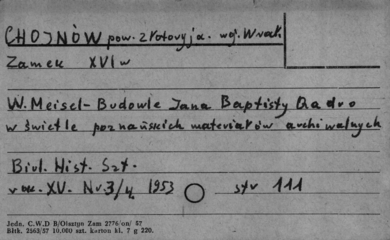 CHOJNÓW pow. Złotoryja. woj. Wrocł.
Zamek XVI w
W. Meisel - Budowle Jana Baptisty Quadro
w świetle poznańskich materiałów archiwalnych
Biul. Hist. Szt.
rok. XV. Nr 3/4 1953 str 111
Jedn. C.W.D B/Olsztyn Zam 2776/on/ 57
Błtk. 2563/57 10.000 szt. karton kl. 7 g 220.